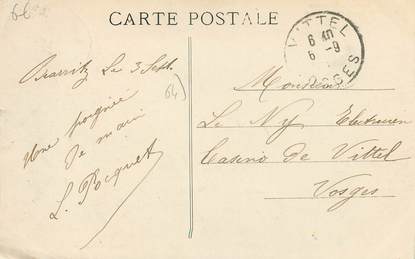 CARTE POSTALE
VITTEL
6 40
6 -9
VOSGES
Biarritz Le 3 Sept.
64)
Une poignée
de main
L. Picquet
Monsieur
Le Ny Electricien
Casino de Vittel
Vosges